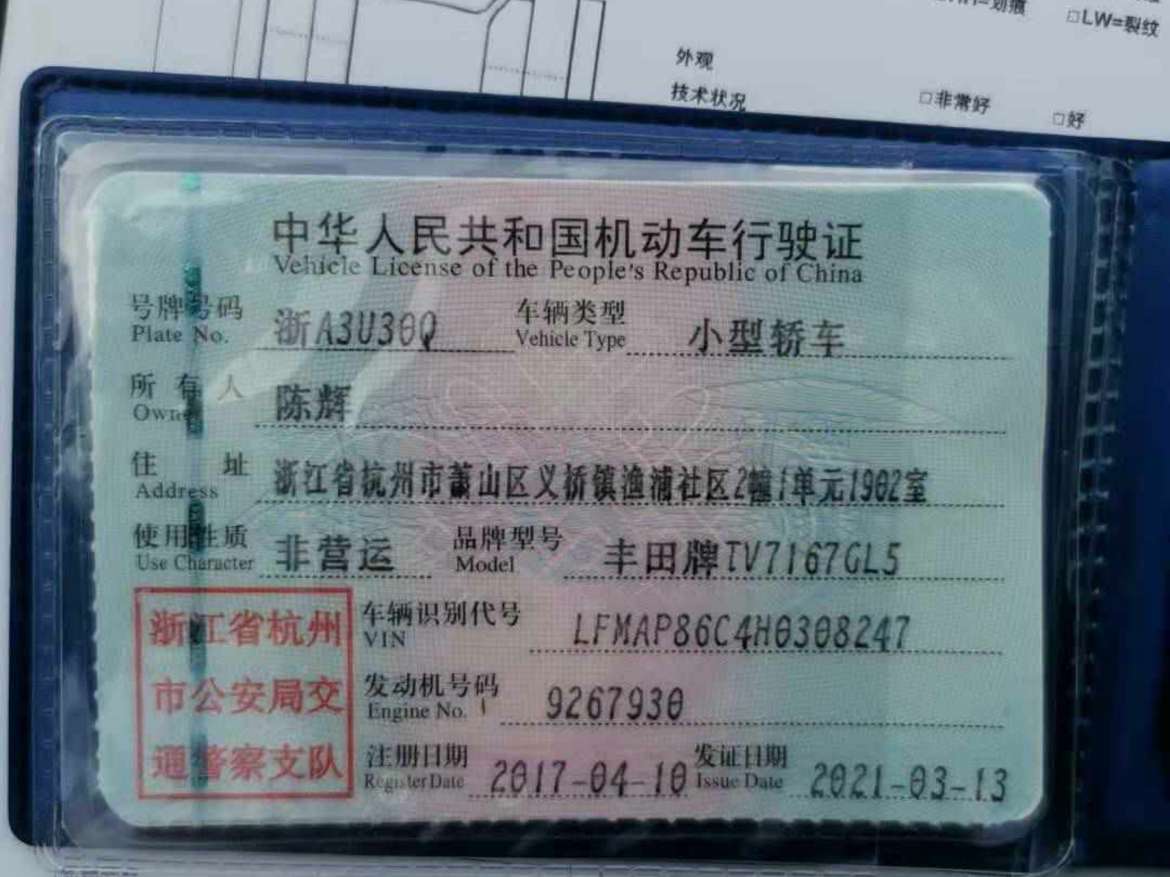 LW=裂纹
外观
技术状况 □非常好 □好
中华人民共和国机动车行驶证
Vehicle License of the People's Republic of China
号牌号码 浙A3U30Q 车辆类型 小型轿车
Plate No. Vehicle Type
所有人 陈辉
Owner
住址 浙江省杭州市萧山区义桥镇渔浦社区2幢1单元1902室
Address
使用性质 非营运 品牌型号 丰田牌TV7167GL5
Use Character Model
浙江省杭州
市公安局交
通警察支队
车辆识别代号 LFMAP86C4H0308247
VIN
发动机号码 9267930
Engine No.
注册日期 2017-04-10 发证日期 2021-03-13
Register Date Issue Date